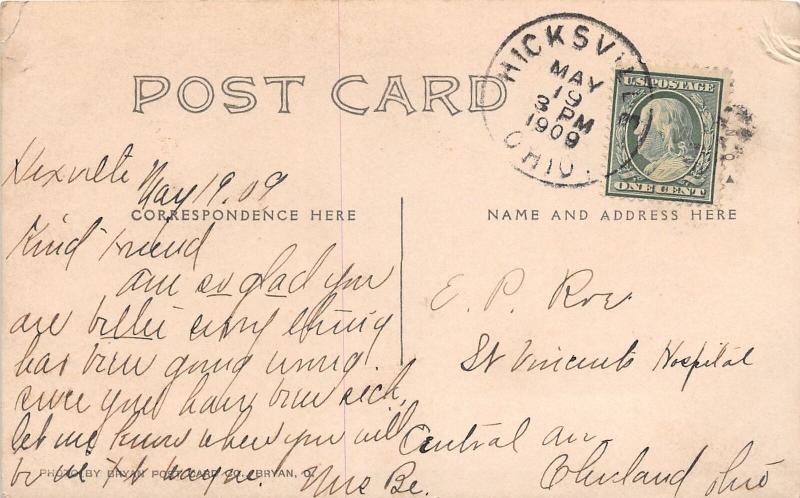 POST CARD
HICKSVILLE
MAY
19
3 PM
1909
OHIO.
U.S. POSTAGE
ONE CENT
Hixville May 19. 09
CORRESPONDENCE HERE
NAME AND ADDRESS HERE
Kind friend
am so glad you
are better every thing
has bine going wrong
since you have bine sick,
let me know when you will
be at Ft Wayne. Mrs Be.
PHOTO BY BRYAN POST CARD CO., BRYAN, O.
E. P. Roe
St Vincents Hospital
Central av
Cleveland Ohio